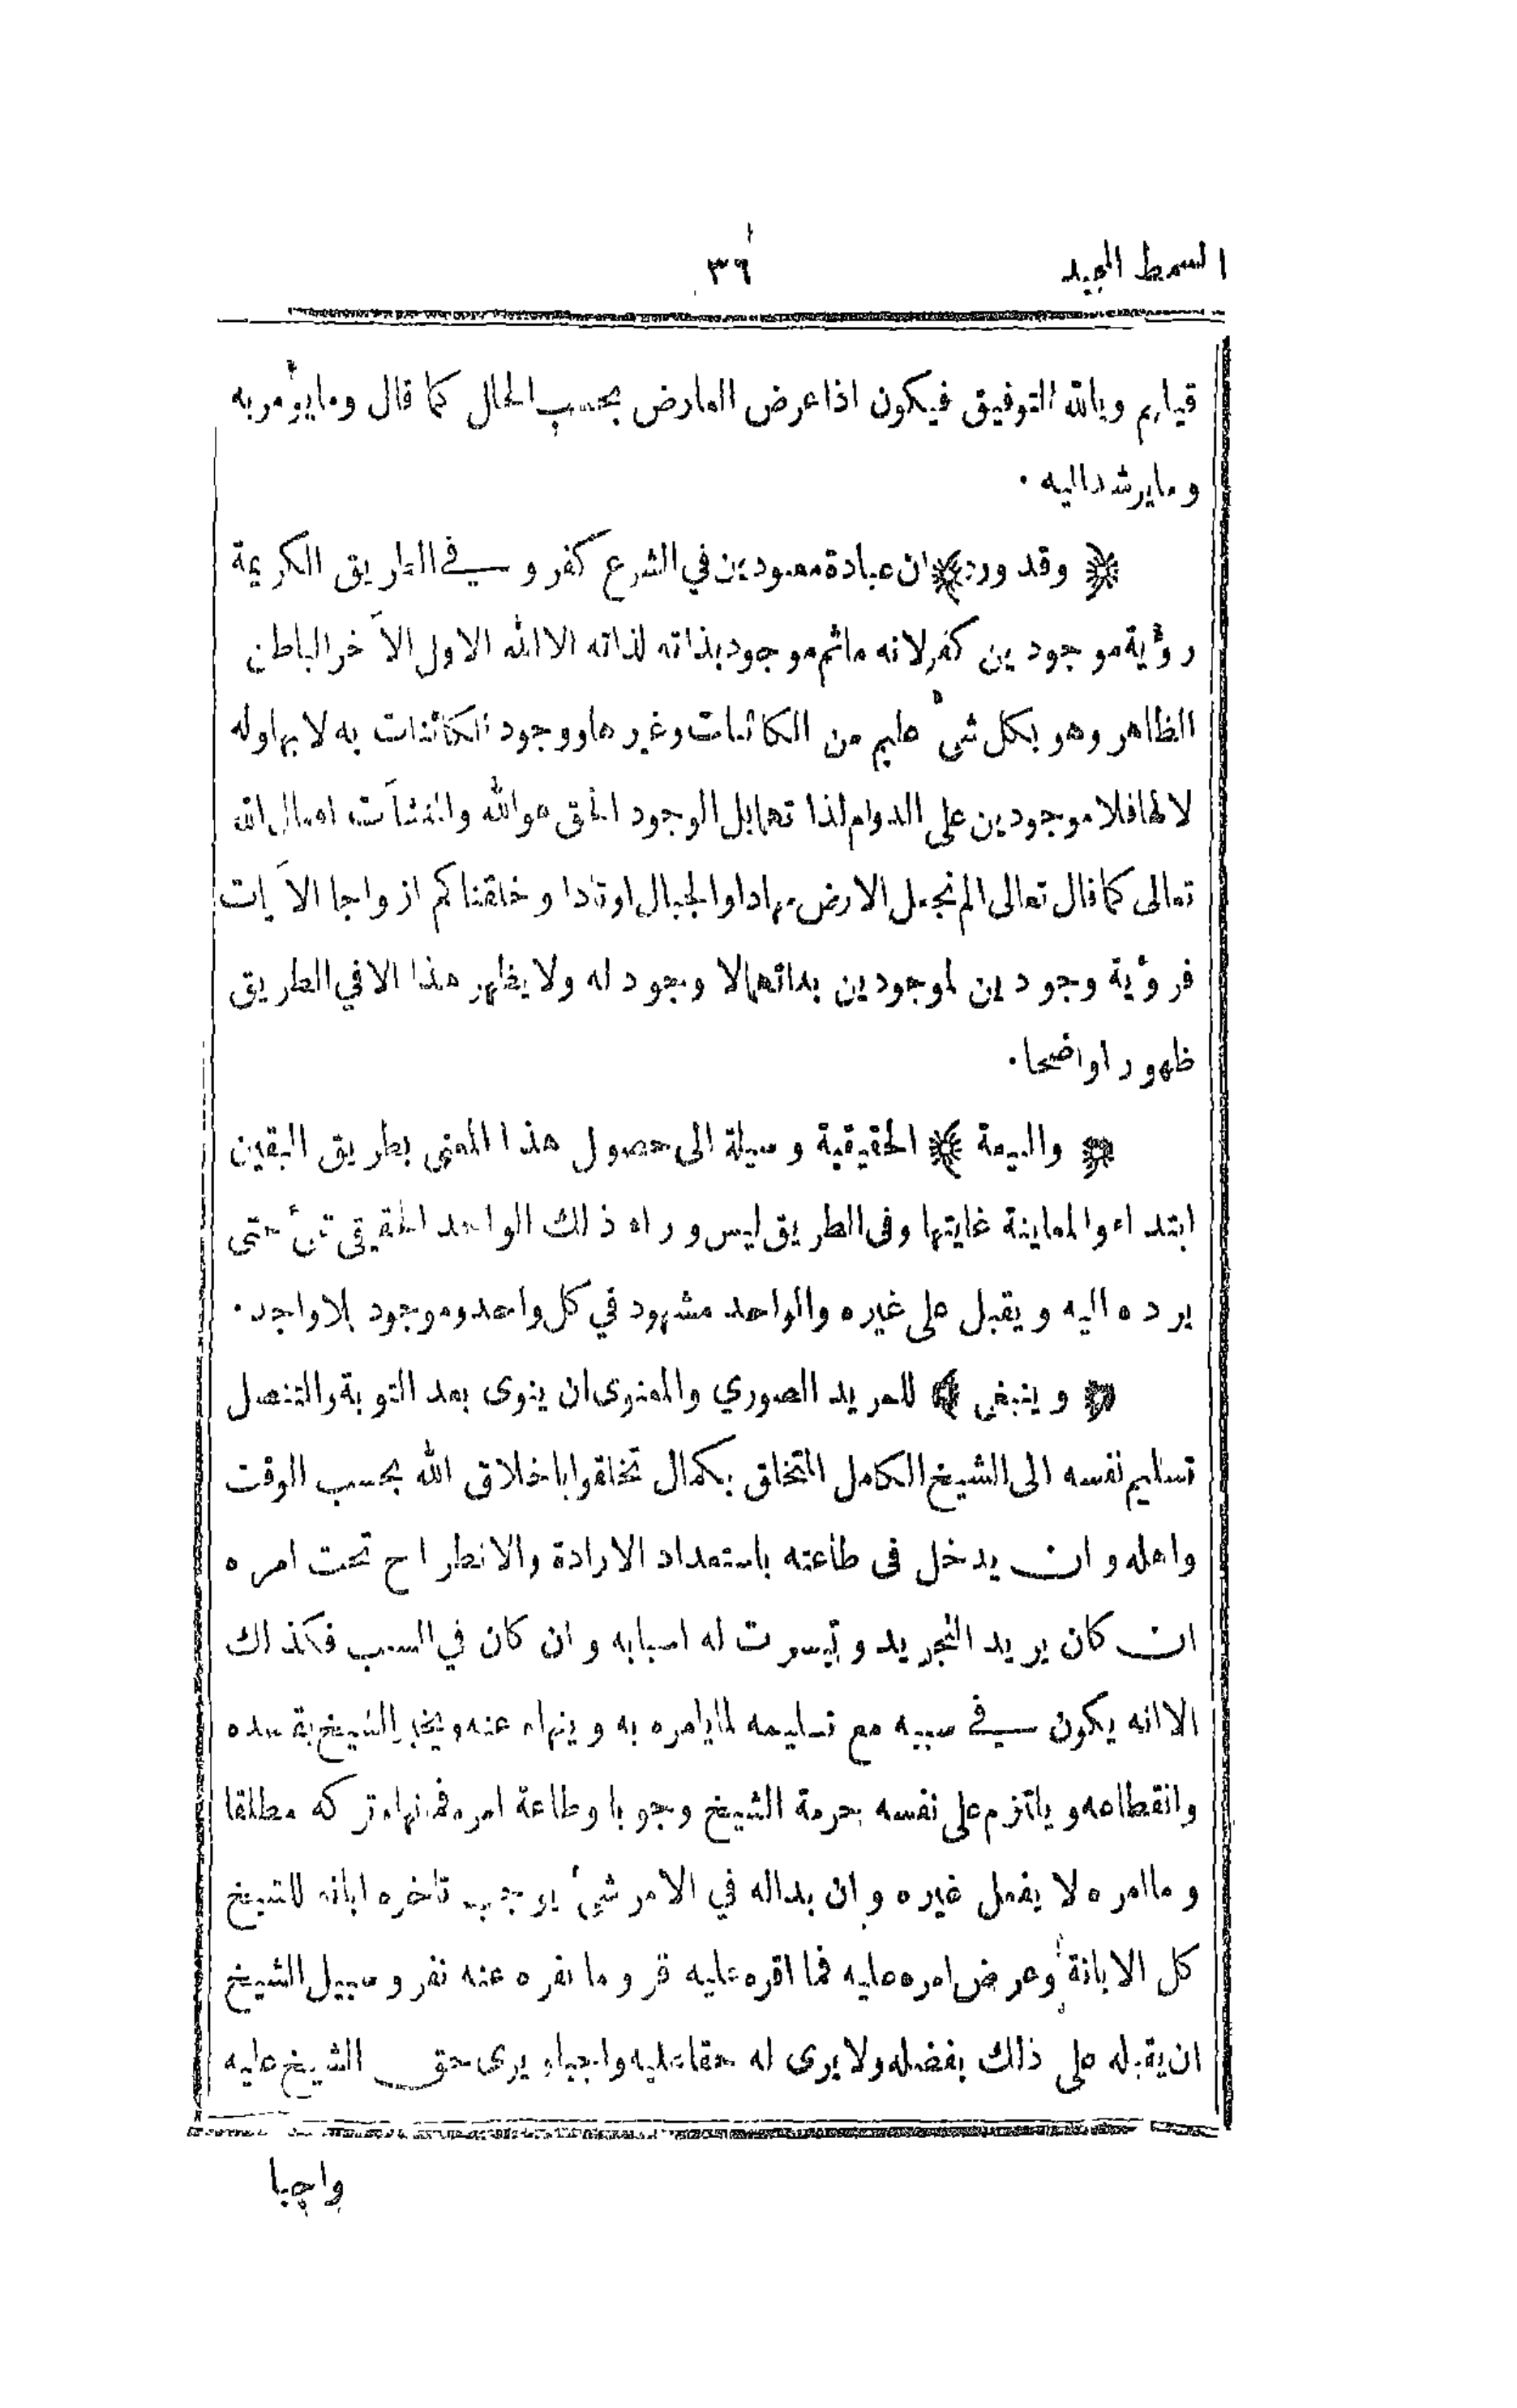 السمط المجيد
٣٦
قيامهم وبالله التوفيق فيكون اذا عرض العارض بحسب الحال كما قال وما يؤمر به
وما يرشد اليه ٠
وقد ورد ان عبادة معبودين في الشرع كفر وسيف الطريق الكريمة
رؤية موجودين كفر لانه ماثم موجود بذاته لذاته الا الله الاول الآخر الباطن
الظاهر وهو بكل شئ عليم من الكائنات وغيرها ووجود الكائنات به لا بها وله
لا لها فلا موجودين على الدوام لذا تهما بل الوجود الحق هو الله والمنشآت افعال الله
تعالى كما قال تعالى الم نجعل الارض مهادا والجبال اوتادا وخلقناكم ازواجا الآيات
فرؤية وجودين لموجودين بذاتهما لا وجود له ولا يظهر هذا الا في الطريق
ظهورا واضحا ٠
والبيعة الحقيقية وسيلة الى حصول هذا المعنى بطريق اليقين
ابتداء والمعاينة غايتها وفى الطريق ليس وراء ذلك الواحد الحقيقي شئ حتى
يرده اليه ويقبل على غيره والواحد مشهود في كل واحد وموجود بلا واجد ٠
وينبغي للمريد الصوري والمعنوى ان ينوى بعد التوبة والتنصل
تسليم نفسه الى الشيخ الكامل المتخلق بكمال تخلقوا باخلاق الله بحسب الوقت
واهله وان يدخل فى طاعته باستعداد الارادة والانطراح تحت امره
ان كان يريد التجريد وتيسرت له اسبابه وان كان في السبب فكذلك
الا انه يكون في سببه مع تسليمه لما يامره به وينهاه عنه ويخبر الشيخ بقصده
وانقطاعه ويلتزم على نفسه بحرمة الشيخ وجوبا وطاعة امره فما نهاه تركه مطلقا
وما امره لا يفعل غيره وان بداله في الامر شئ يوجب تاخره ابانه للشيخ
كل الابانة وعرض امره عليه فما اقره عليه قر وما نفره عنه نفر وسبيل الشيخ
ان يقبله على ذلك بفضله ولا يرى له حقا عليه واجبا و يرى حق الشيخ عليه
واجبا